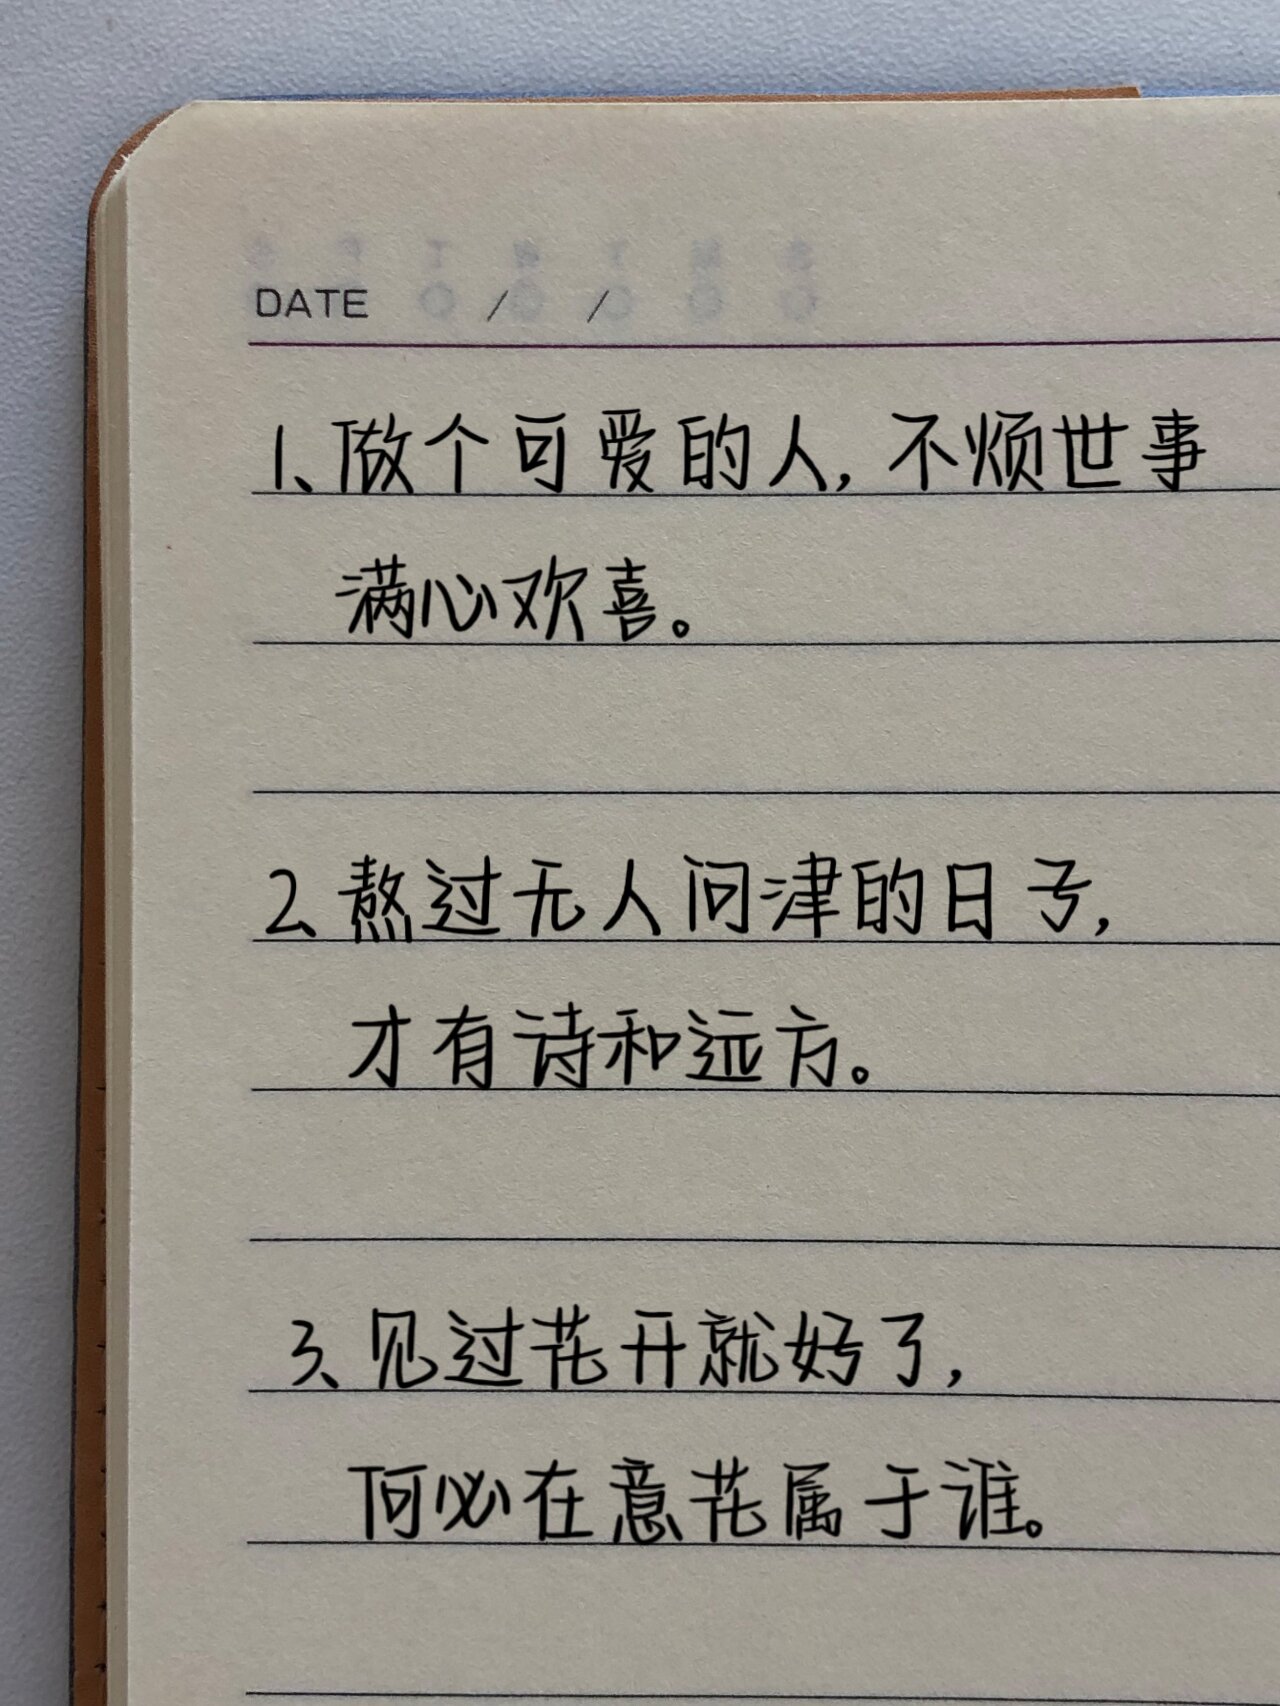 DATE / /
1、做个可爱的人，不烦世事
满心欢喜。
2、熬过无人问津的日子，
才有诗和远方。
3、见过花开就好了，
何必在意花属于谁。